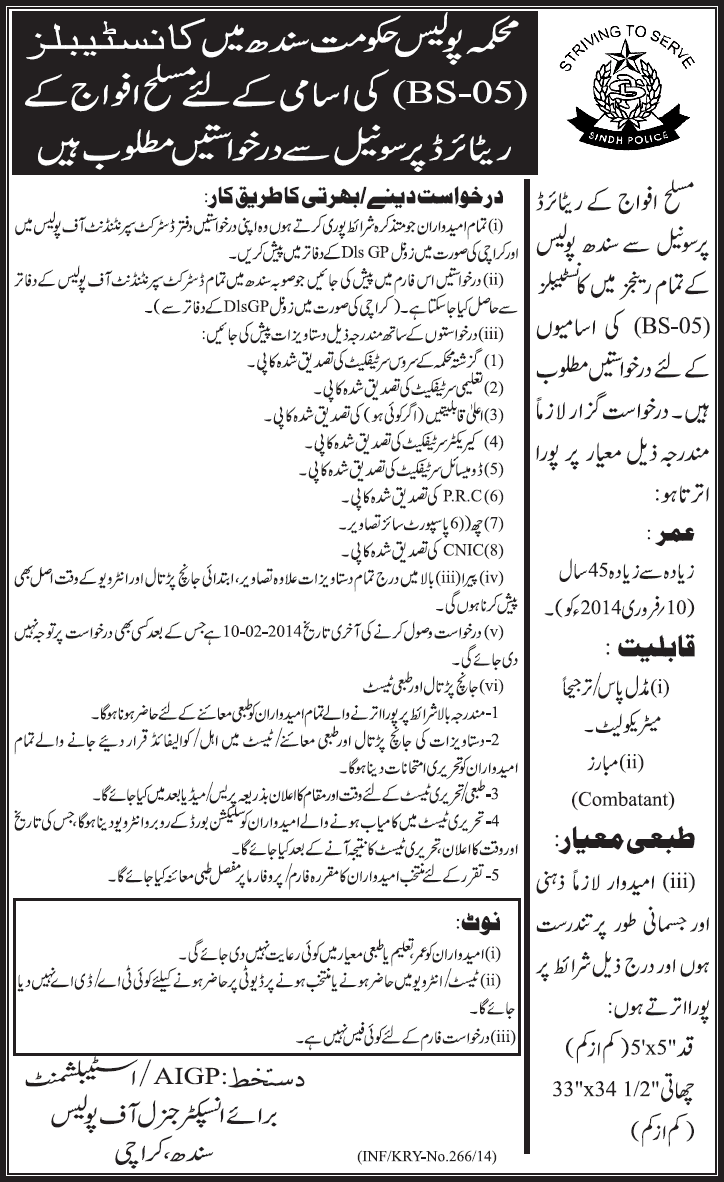 محکمہ پولیس حکومت سندھ میں کانسٹیبلز
(BS-05) کی اسامی کے لئے مسلح افواج کے
ریٹائرڈ پرسونیل سے درخواستیں مطلوب ہیں
STRIVING TO SERVE
SINDH POLICE
مسلح افواج کے ریٹائرڈ
پرسونیل سے سندھ پولیس
کے تمام رینجز میں کانسٹیبلز
(BS-05) کی اسامیوں
کے لئے درخواستیں مطلوب
ہیں۔ درخواست گزار لازماً
مندرجہ ذیل معیار پر پورا
اترتا ہو:
عمر:
زیادہ سے زیادہ 45 سال
(10/فروری 2014ء کو)۔
قابلیت:
(i) مڈل پاس/ترجیحاً
میٹریکولیٹ۔
(ii) مبارز
(Combatant)
طبعی معیار:
(iii) امیدوار لازماً ذہنی
اور جسمانی طور پر تندرست
ہوں اور درج ذیل شرائط پر
پورا اترتے ہوں:
قد "5'x5 (کم از کم)
چھاتی "33"x34 1/2
(کم از کم)
درخواست دینے/بھرتی کا طریق کار:
(i) تمام امیدواران جو متذکرہ شرائط پوری کرتے ہوں وہ اپنی درخواستیں دفتر ڈسٹرکٹ سپرنٹنڈنٹ آف پولیس میں
اور کراچی کی صورت میں زونل DIsGP کے دفاتر میں پیش کریں۔
(ii) درخواستیں اس فارم میں پیش کی جائیں جو صوبہ سندھ میں تمام ڈسٹرکٹ سپرنٹنڈنٹ آف پولیس کے دفاتر
سے حاصل کیا جاسکتا ہے۔ (کراچی کی صورت میں زونل DIsGP کے دفاتر سے)۔
(iii) درخواستوں کے ساتھ مندرجہ ذیل دستاویزات پیش کی جائیں:
(1) گزشتہ محکمہ کے سروس سرٹیفکیٹ کی تصدیق شدہ کاپی۔
(2) تعلیمی سرٹیفکیٹ کی تصدیق شدہ کاپی۔
(3) اعلیٰ قابلیتیں (اگر کوئی ہو) کی تصدیق شدہ کاپی۔
(4) کیریکٹر سرٹیفکیٹ کی تصدیق شدہ کاپی۔
(5) ڈومیسائل سرٹیفکیٹ کی تصدیق شدہ کاپی۔
(6) P.R.C کی تصدیق شدہ کاپی۔
(7) چھ((6 پاسپورٹ سائز تصاویر۔
(8) CNIC کی تصدیق شدہ کاپی۔
(iv) پیرا (iii) بالا میں درج تمام دستاویزات علاوہ تصاویر، ابتدائی جانچ پڑتال اور انٹرویو کے وقت اصل بھی
پیش کرنا ہوں گی۔
(v) درخواست وصول کرنے کی آخری تاریخ 10-02-2014 ہے جس کے بعد کسی بھی درخواست پر توجہ نہیں
دی جائے گی۔
(vi) جانچ پڑتال اور طبعی ٹیسٹ
1- مندرجہ بالا شرائط پر پورا اترنے والے تمام امیدواران کو طبعی معائنے کے لئے حاضر ہونا ہوگا۔
2- دستاویزات کی جانچ پڑتال اور طبعی معائنے/ٹیسٹ میں اہل/کوالیفائڈ قرار دیئے جانے والے تمام
امیدواران کو تحریری امتحانات دینا ہوگا۔
3- طبعی/تحریری ٹیسٹ کے لئے وقت اور مقام کا اعلان بذریعہ پریس/میڈیا بعد میں کیا جائے گا۔
4- تحریری ٹیسٹ میں کامیاب ہونے والے امیدواران کو سلیکشن بورڈ کے روبرو انٹرویو دینا ہوگا، جس کی تاریخ
اور وقت کا اعلان، تحریری ٹیسٹ کا نتیجہ آنے کے بعد کیا جائے گا۔
5- تقرر کے لئے منتخب امیدواران کا مقررہ فارم/پروفارما پر مفصل طبی معائنہ کیا جائے گا۔
نوٹ:
(i) امیدواران کو عمر، تعلیم یا طبعی معیار میں کوئی رعایت نہیں دی جائے گی۔
(ii) ٹیسٹ/انٹرویو میں حاضر ہونے یا منتخب ہونے پر ڈیوٹی پر حاضر ہونے کیلئے کوئی ٹی اے/ڈی اے نہیں دیا
جائے گا۔
(iii) درخواست فارم کے لئے کوئی فیس نہیں ہے۔
دستخط: AIGP/اسٹیبلشمنٹ
برائے انسپکٹر جنرل آف پولیس
سندھ، کراچی
(INF/KRY-No.266/14)